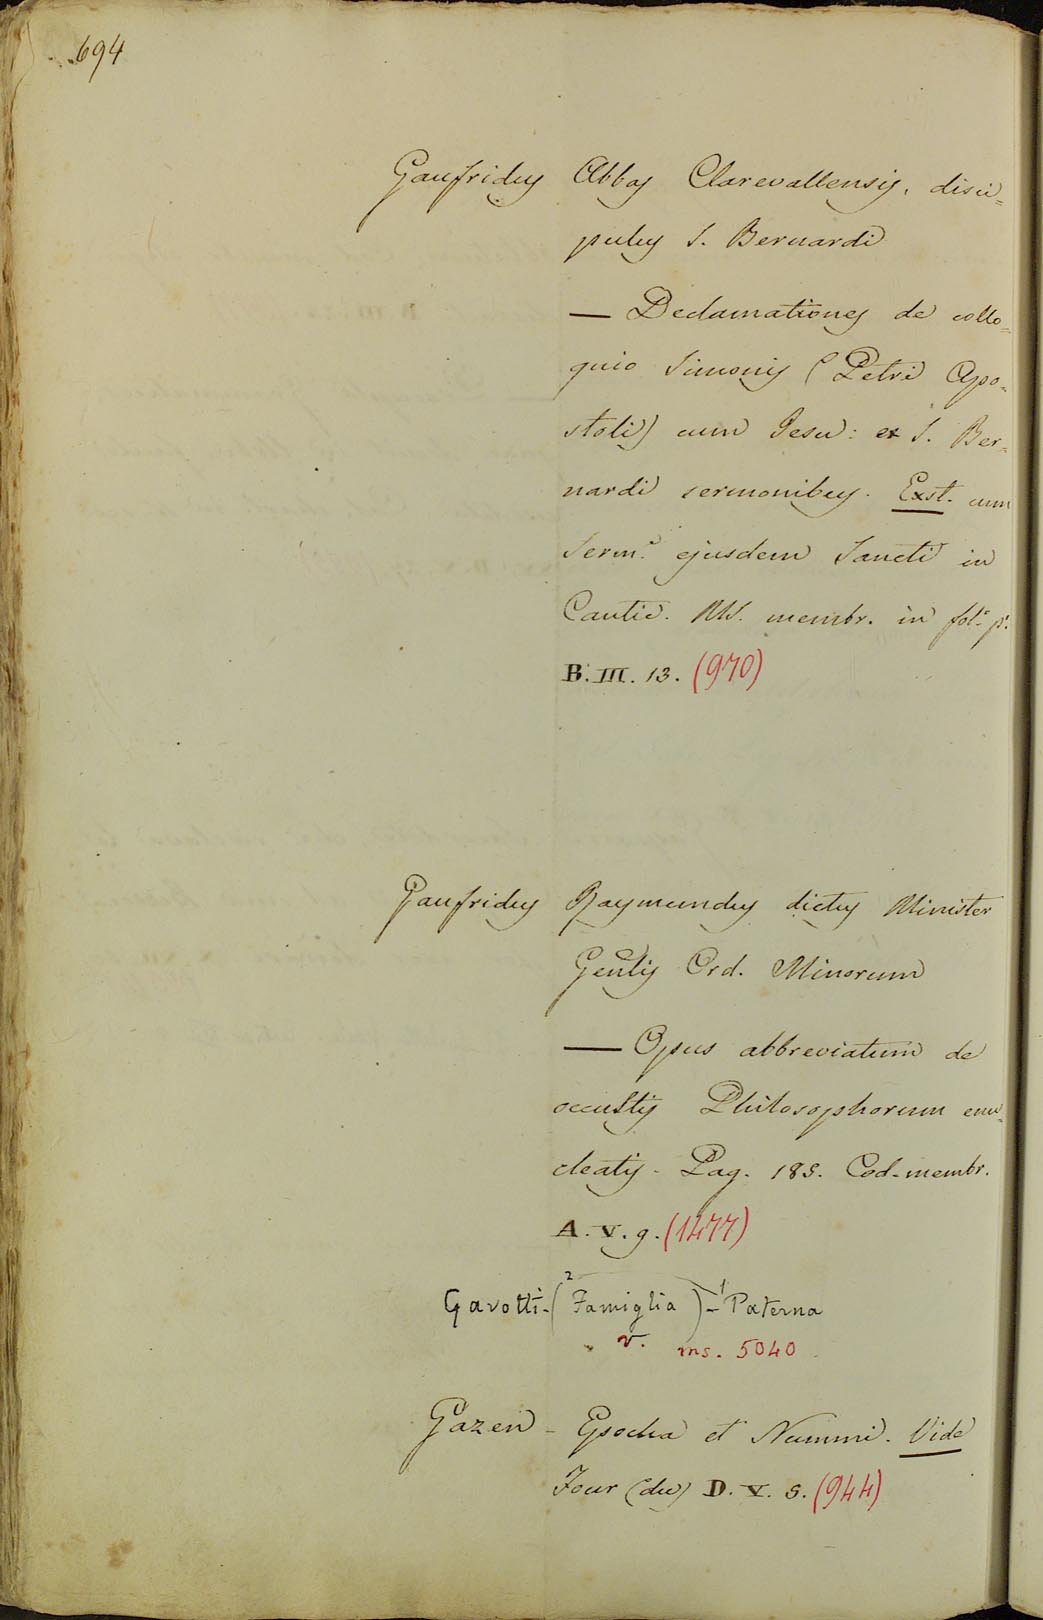 694
Gaufridus Abbas Clarevallensis, disci=
pulus S. Bernardi
— Declamationes de collo=
quio Simonis (Petri Apo=
stoli) cum Jesu: ex S. Ber=
nardi sermonibus. Exst. cum
Serm.ᵉ ejusdem Sancti in
Cantic. MS. membr. in fol.º p.
B. III. 13. (970)
Gaufridus Raymundus dictus Minister
Gen̄lis Ord. Minorum
— Opus abbreviatum de
occultis Philosophorum enu=
cleatis. Pag. 185. Cod. membr.
A. V. 9. (1477)
Gavotti - (² Famiglia) - ¹ Paterna
v. ms. 5040
Gazen - Epocha et Nummi. Vide
Four (du) D. V. 5. (944)